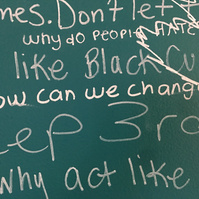 mes. Don't let
why do people HATE
like Black Cu
ow can we chang
eep 3rd
why act like